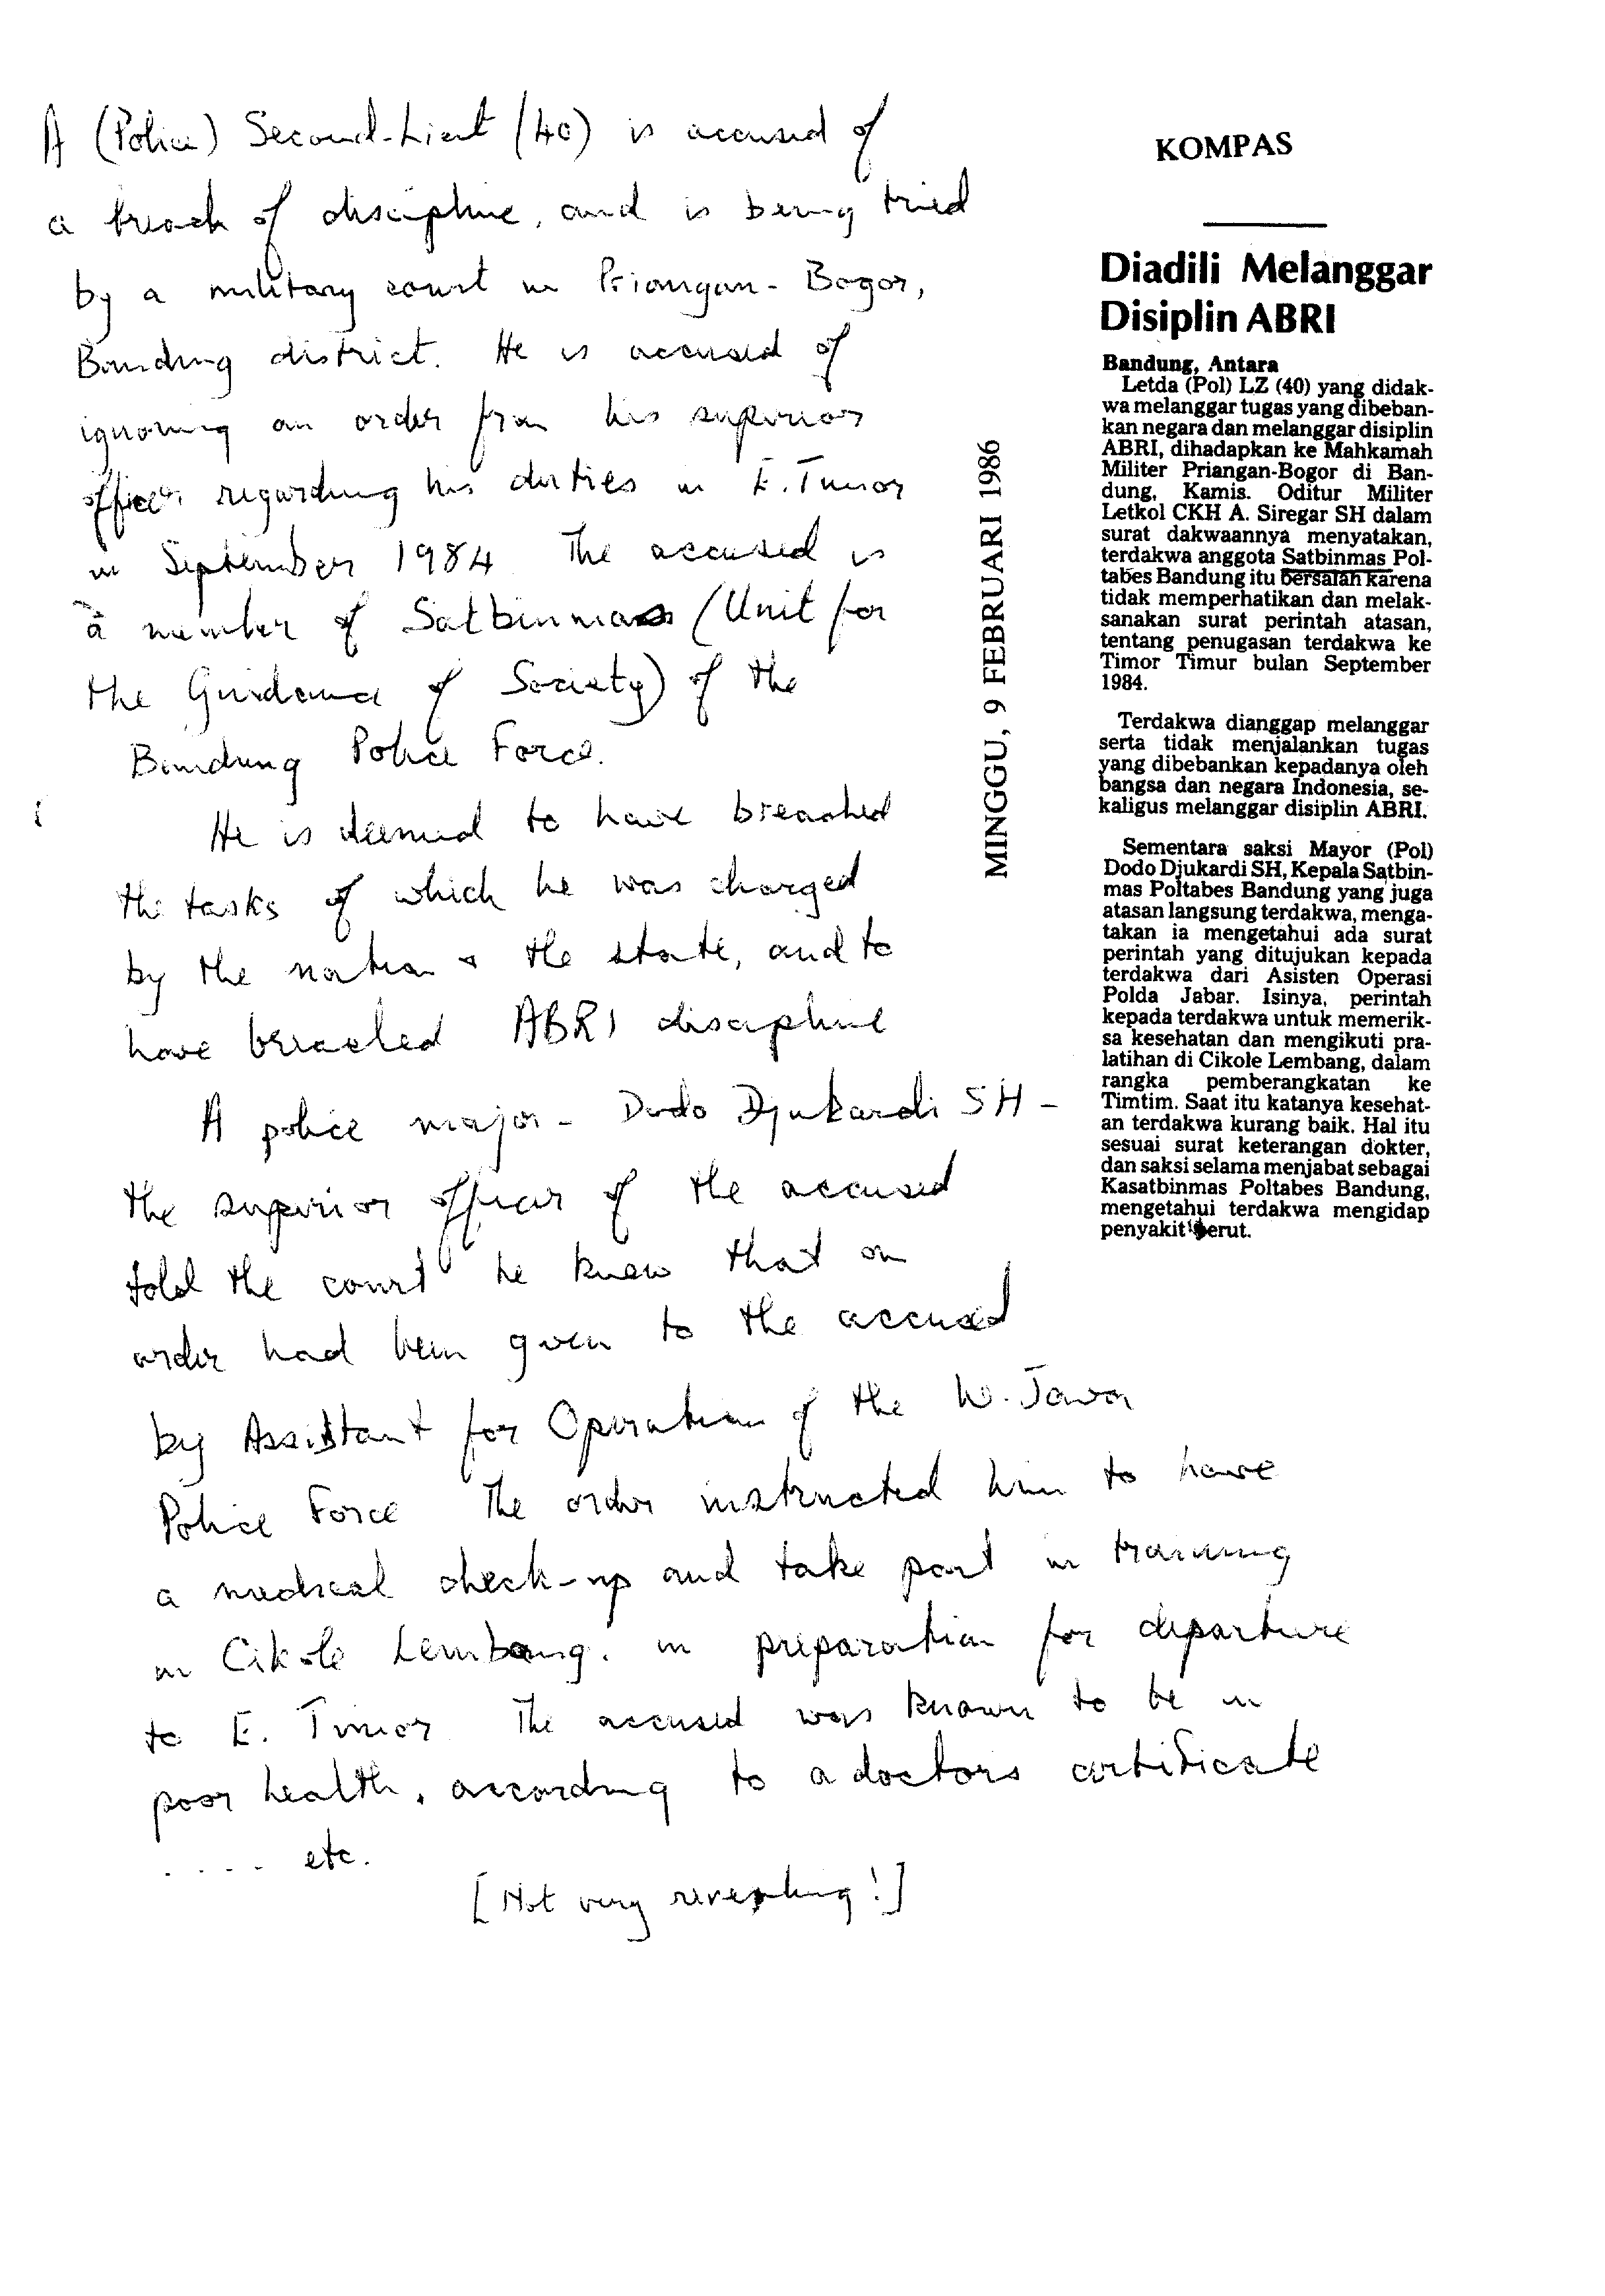 A (Police) Second-Lieut (40) is accused of
a breach of discipline, and is being tried
by a military court in Priangan-Bogor,
Bandung district. He is accused of
ignoring an order from his superior
officer regarding his duties in E. Timor
in September 1984 The accused is
a member of Satbinmas (Unit for
the Guidance of Society) of the
Bandung Police Force.
He is deemed to have breached
the tasks of which he was charged
by the nation + the state, and to
have breached ABRI discipline
A police major - Dodo Djukardi SH -
the superior officer of the accused
told the court he knew that an
order had been given to the accused
by Assistant for Operation of the W. Java
Police Force The order instructed him to have
a medical check-up and take part in training
in Cikole Lembang. in preparation for departure
to E. Timor The accused was known to be in
poor health, according to a doctors certificate
..... etc.
[Not very revealing!]
MINGGU, 9 FEBRUARI 1986
KOMPAS
Diadili Melanggar
Disiplin ABRI
Bandung, Antara
Letda (Pol) LZ (40) yang didak-
wa melanggar tugas yang dibeban-
kan negara dan melanggar disiplin
ABRI, dihadapkan ke Mahkamah
Militer Priangan-Bogor di Ban-
dung, Kamis. Oditur Militer
Letkol CKH A. Siregar SH dalam
surat dakwaannya menyatakan,
terdakwa anggota Satbinmas Pol-
tabes Bandung itu bersalah karena
tidak memperhatikan dan melak-
sanakan surat perintah atasan,
tentang penugasan terdakwa ke
Timor Timur bulan September
1984.
Terdakwa dianggap melanggar
serta tidak menjalankan tugas
yang dibebankan kepadanya oleh
bangsa dan negara Indonesia, se-
kaligus melanggar disiplin ABRI.
Sementara saksi Mayor (Pol)
Dodo Djukardi SH, Kepala Satbin-
mas Poltabes Bandung yang juga
atasan langsung terdakwa, menga-
takan ia mengetahui ada surat
perintah yang ditujukan kepada
terdakwa dari Asisten Operasi
Polda Jabar. Isinya, perintah
kepada terdakwa untuk memerik-
sa kesehatan dan mengikuti pra-
latihan di Cikole Lembang, dalam
rangka pemberangkatan ke
Timtim. Saat itu katanya kesehat-
an terdakwa kurang baik. Hal itu
sesuai surat keterangan dokter,
dan saksi selama menjabat sebagai
Kasatbinmas Poltabes Bandung,
mengetahui terdakwa mengidap
penyakit perut.